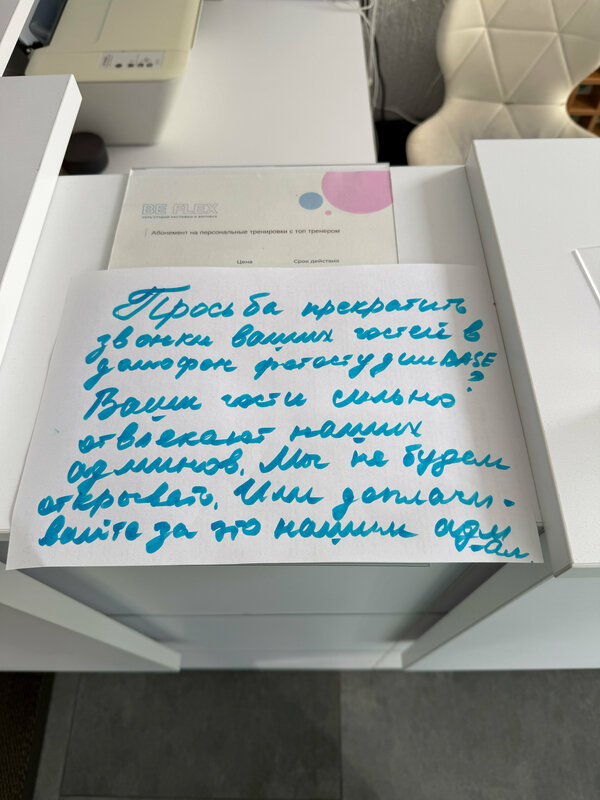 BE FLEX
СЕТЬ СТУДИЙ РАСТЯЖКИ И ФИТНЕСА
Абонемент на персональные тренировки с топ тренером
Цена Срок действия
Просьба прекратить
звонки ваших гостей в
домофон фотостудии BASE
Ваши гости сильно
отвлекают наших
админов. Мы не будем
открывать. Или доплачи-
вайте за это нашим адм
-ам.